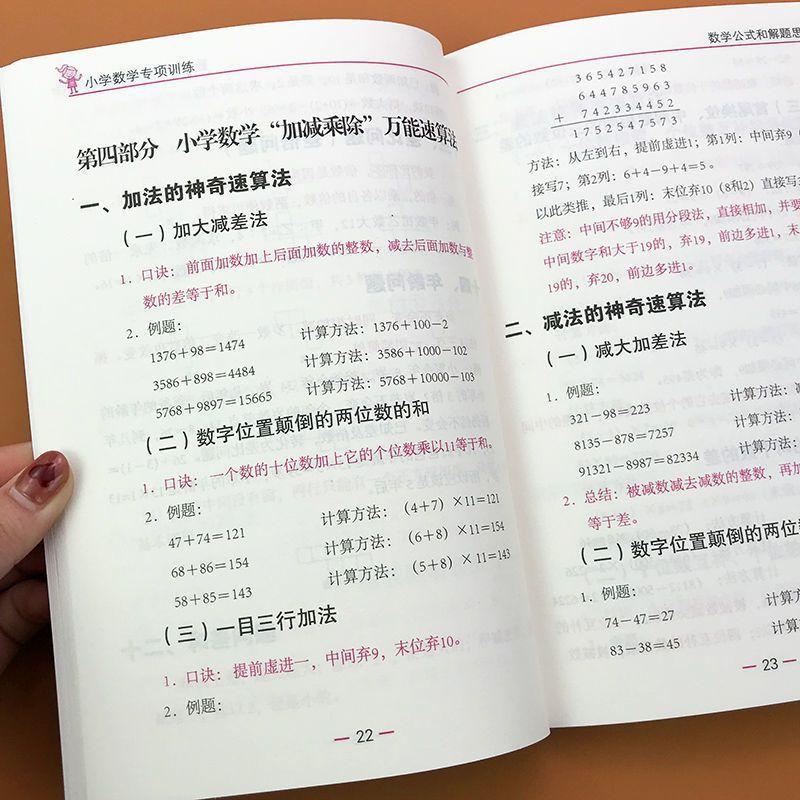 小学数学专项训练
第四部分 小学数学“加减乘除”万能速算法
一、加法的神奇速算法
（一）加大减差法
1. 口诀：前面加数加上后面加数的整数，减去后面加数与整
数的差等于和。
2. 例题：
1376+98=1474 计算方法：1376+100-2
3586+898=4484 计算方法：3586+1000-102
5768+9897=15665 计算方法：5768+10000-103
（二）数字位置颠倒的两位数的和
1. 口诀：一个数的十位数加上它的个位数乘以11等于和。
2. 例题：
47+74=121 计算方法：（4+7）×11=121
68+86=154 计算方法：（6+8）×11=154
58+85=143 计算方法：（5+8）×11=143
（三）一目三行加法
1. 口诀：提前虚进一，中间弃9，末位弃10。
2. 例题：
— 22 —
数学公式和解题思
365427158
644785963
+ 742334452
1752547573
方法：从左到右，提前虚进1；第1列：中间弃9（
接写7；第2列：6+4-9+4=5。
以此类推，最后1列：末位弃10（8和2）直接写
注意：中间不够9的用分段法，直接相加，并要
中间数字和大于19的，弃19，前边多进1，末
19的，弃20，前边多进1。
二、减法的神奇速算法
（一）减大加差法
1. 例题：
321-98=223 计算方法：
8135-878=7257 计算方法：
91321-8987=82334 计算方法：
2. 总结：被减数减去减数的整数，再加
等于差。
（二）数字位置颠倒的两位
1. 例题：
74-47=27 计算方
83-38=45 计算方
— 23 —